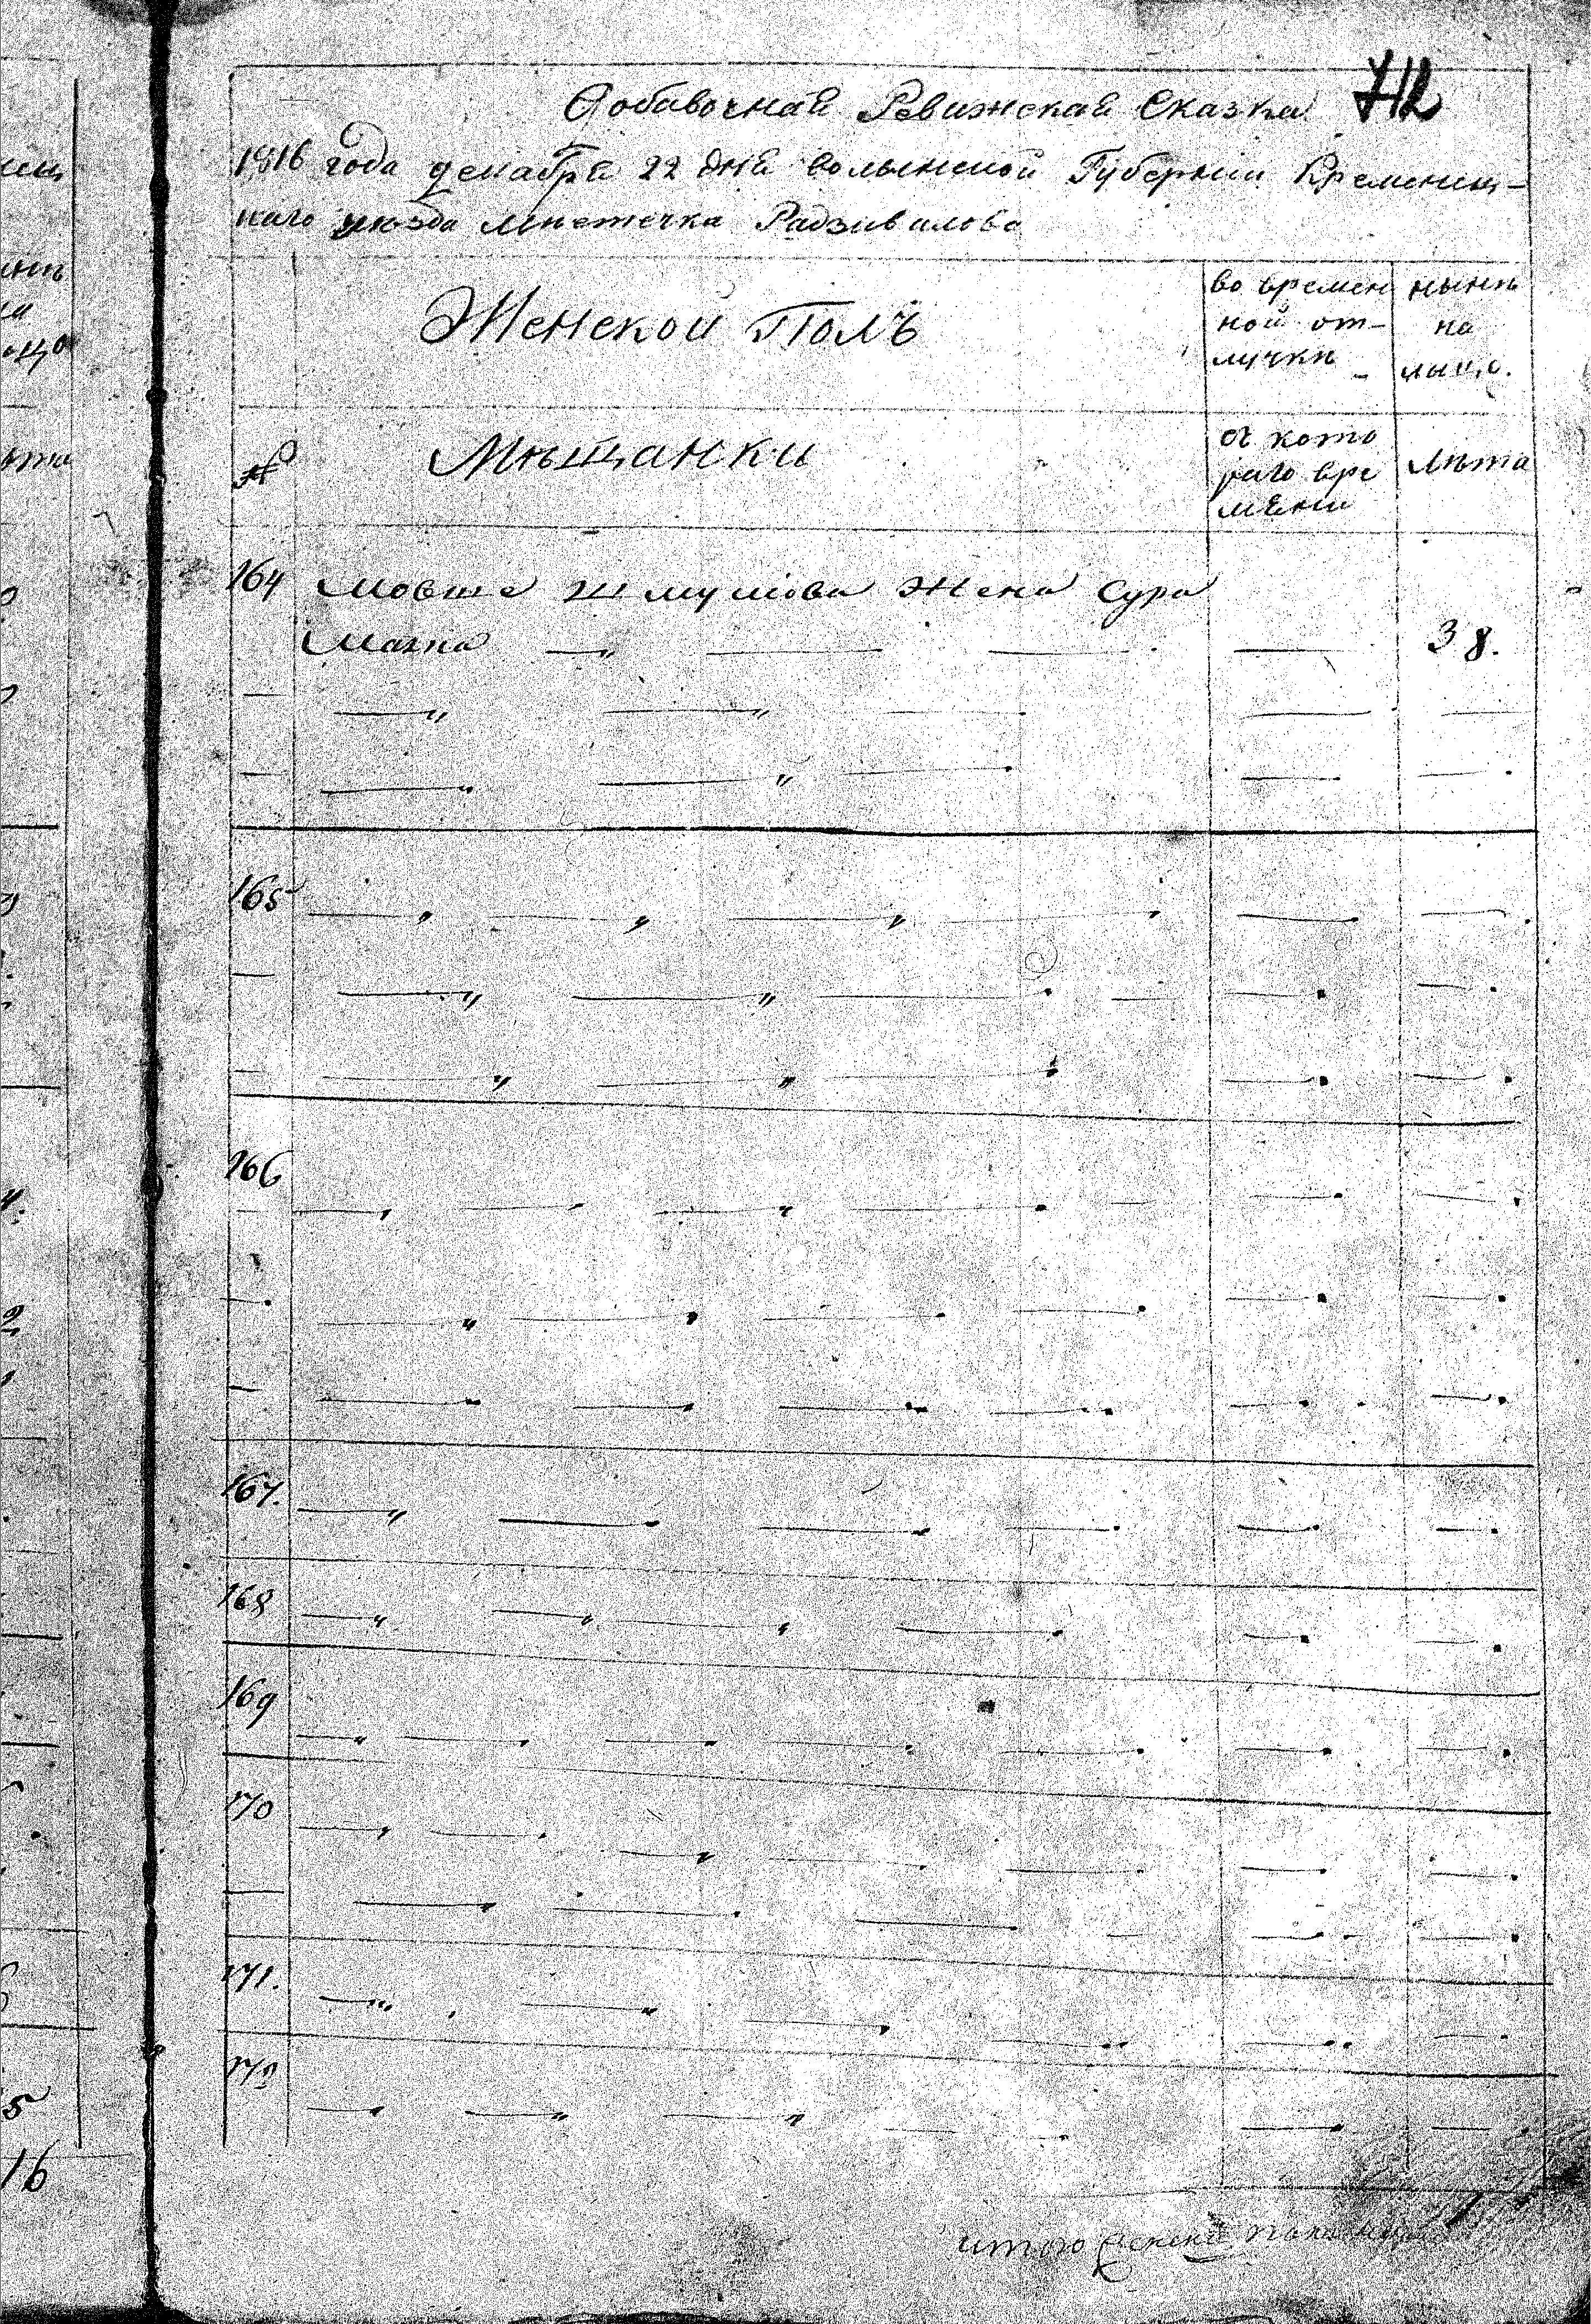 712
Добавочная Ревижская Сказка
1816 года декабря 22 дня волынской Губернии Кременец-
каго уѣзда мѣстечка Радзивилова
Женской Полъ
во времен
ной от-
лучкѣ
нынѣ
на
лицо.
№
Мѣщанки
съ кото
раго вре
мени
Лѣта
164 Мовше Шмулiова жена Сура
Малка 38.
165
166
167.
168
169
170
171.
172
итого женска пола